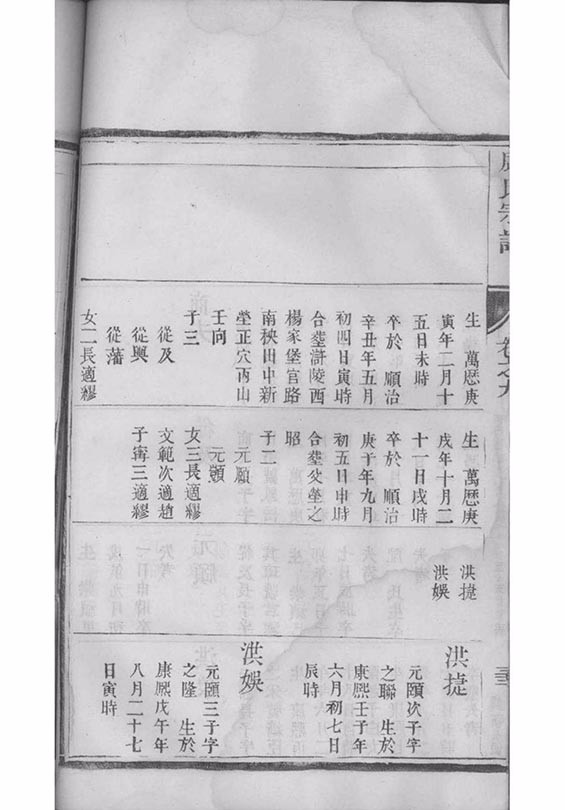 氏宗譜
卷之九
生 萬厯庚
寅年二月十
五日未時
卒於 順治
辛丑年五月
初四日寅時
合塟滸陵西
楊家堡官路
南秧田中新
塋正穴丙山
壬向
子三
從及
從輿
從藩
女二長適繆
生 萬厯庚
戌年十月二
十一日戌時
卒於 順治
庚子年九月
初五日申時
合塟父塋之
昭
子二
元願
元顗
女三長適繆
文範次適趙
子寗三適繆
洪捷
洪娛
洪捷
元頤次子字
之聯 生於
康熙壬子年
六月初七日
辰時
洪娛
元頤三子字
之隆 生於
康熙戊午年
八月二十七
日寅時